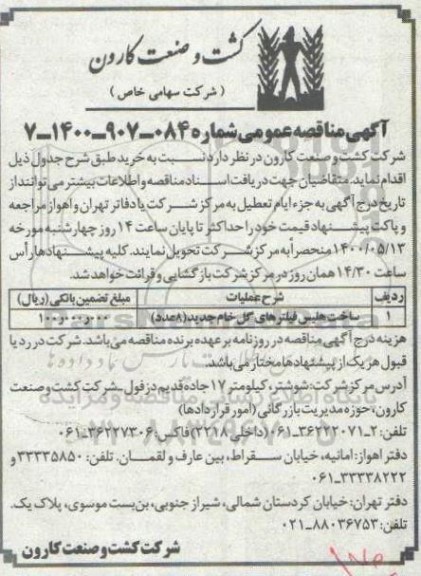 کشت و صنعت کارون
( شرکت سهامی خاص )
آگهی مناقصه عمومی شماره ۰۸۴-۹۰۷-۱۴۰۰-۷
شرکت کشت و صنعت کارون در نظر دارد نسبت به خرید طبق شرح جدول ذیل
اقدام نماید. متقاضیان جهت دریافت اسناد مناقصه و اطلاعات بیشتر می توانند از
تاریخ درج آگهی به جزء ایام تعطیل به مرکز شرکت یا دفاتر تهران و اهواز مراجعه
و پاکت پیشنهاد قیمت خود را حداکثر تا پایان ساعت ۱۴ روز چهارشنبه مورخه
۱۴۰۰/۰۵/۱۳ منحصراً به مرکز شرکت تحویل نمایند. کلیه پیشنهادها رأس
ساعت ۱۴/۳۰ همان روز در مرکز شرکت بازگشایی و قرائت خواهد شد.
ردیف شرح عملیات مبلغ تضمین بانکی (ریال)
۱ ساخت هلیس فیلترهای گل خام جدید (۸عدد) ۱۰۰,۰۰۰,۰۰۰
هزینه درج آگهی مناقصه در روزنامه بر عهده برنده مناقصه می باشد. شرکت در رد یا
قبول هر یک از پیشنهادها مختار می باشد.
آدرس مرکز شرکت: شوشتر، کیلومتر ۱۷ جاده قدیم دزفول شرکت کشت و صنعت
کارون، حوزه مدیریت بازرگانی (امور قراردادها)
تلفن: ۲-۳۶۲۲۲۰۷۱-۰۶۱ (داخلی ۲۲۱۸) فاکس: ۳۶۲۲۷۳۰۶-۰۶۱
دفتر اهواز: امانیه، خیابان سقراط، بین عارف و لقمان. تلفن: ۳۳۳۳۵۸۵۰ و
۳۳۳۳۸۲۲۲-۰۶۱
دفتر تهران: خیابان کردستان شمالی، شیراز جنوبی، بن بست موسوی، پلاک یک.
تلفن: ۸۸۰۳۶۷۵۳-۰۲۱
شرکت کشت و صنعت کارون